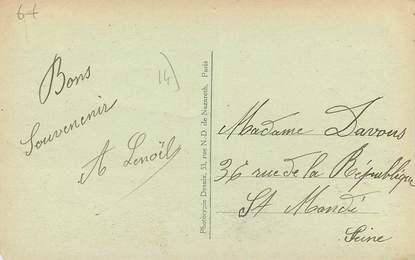 64
14)
Bons
Souvenenir
A Lenoël
Phototypie Dessaix, 53, rue N.-D. de Nazareth, Paris
Madame Davous
36 rue de la République
St Mandé
Seine